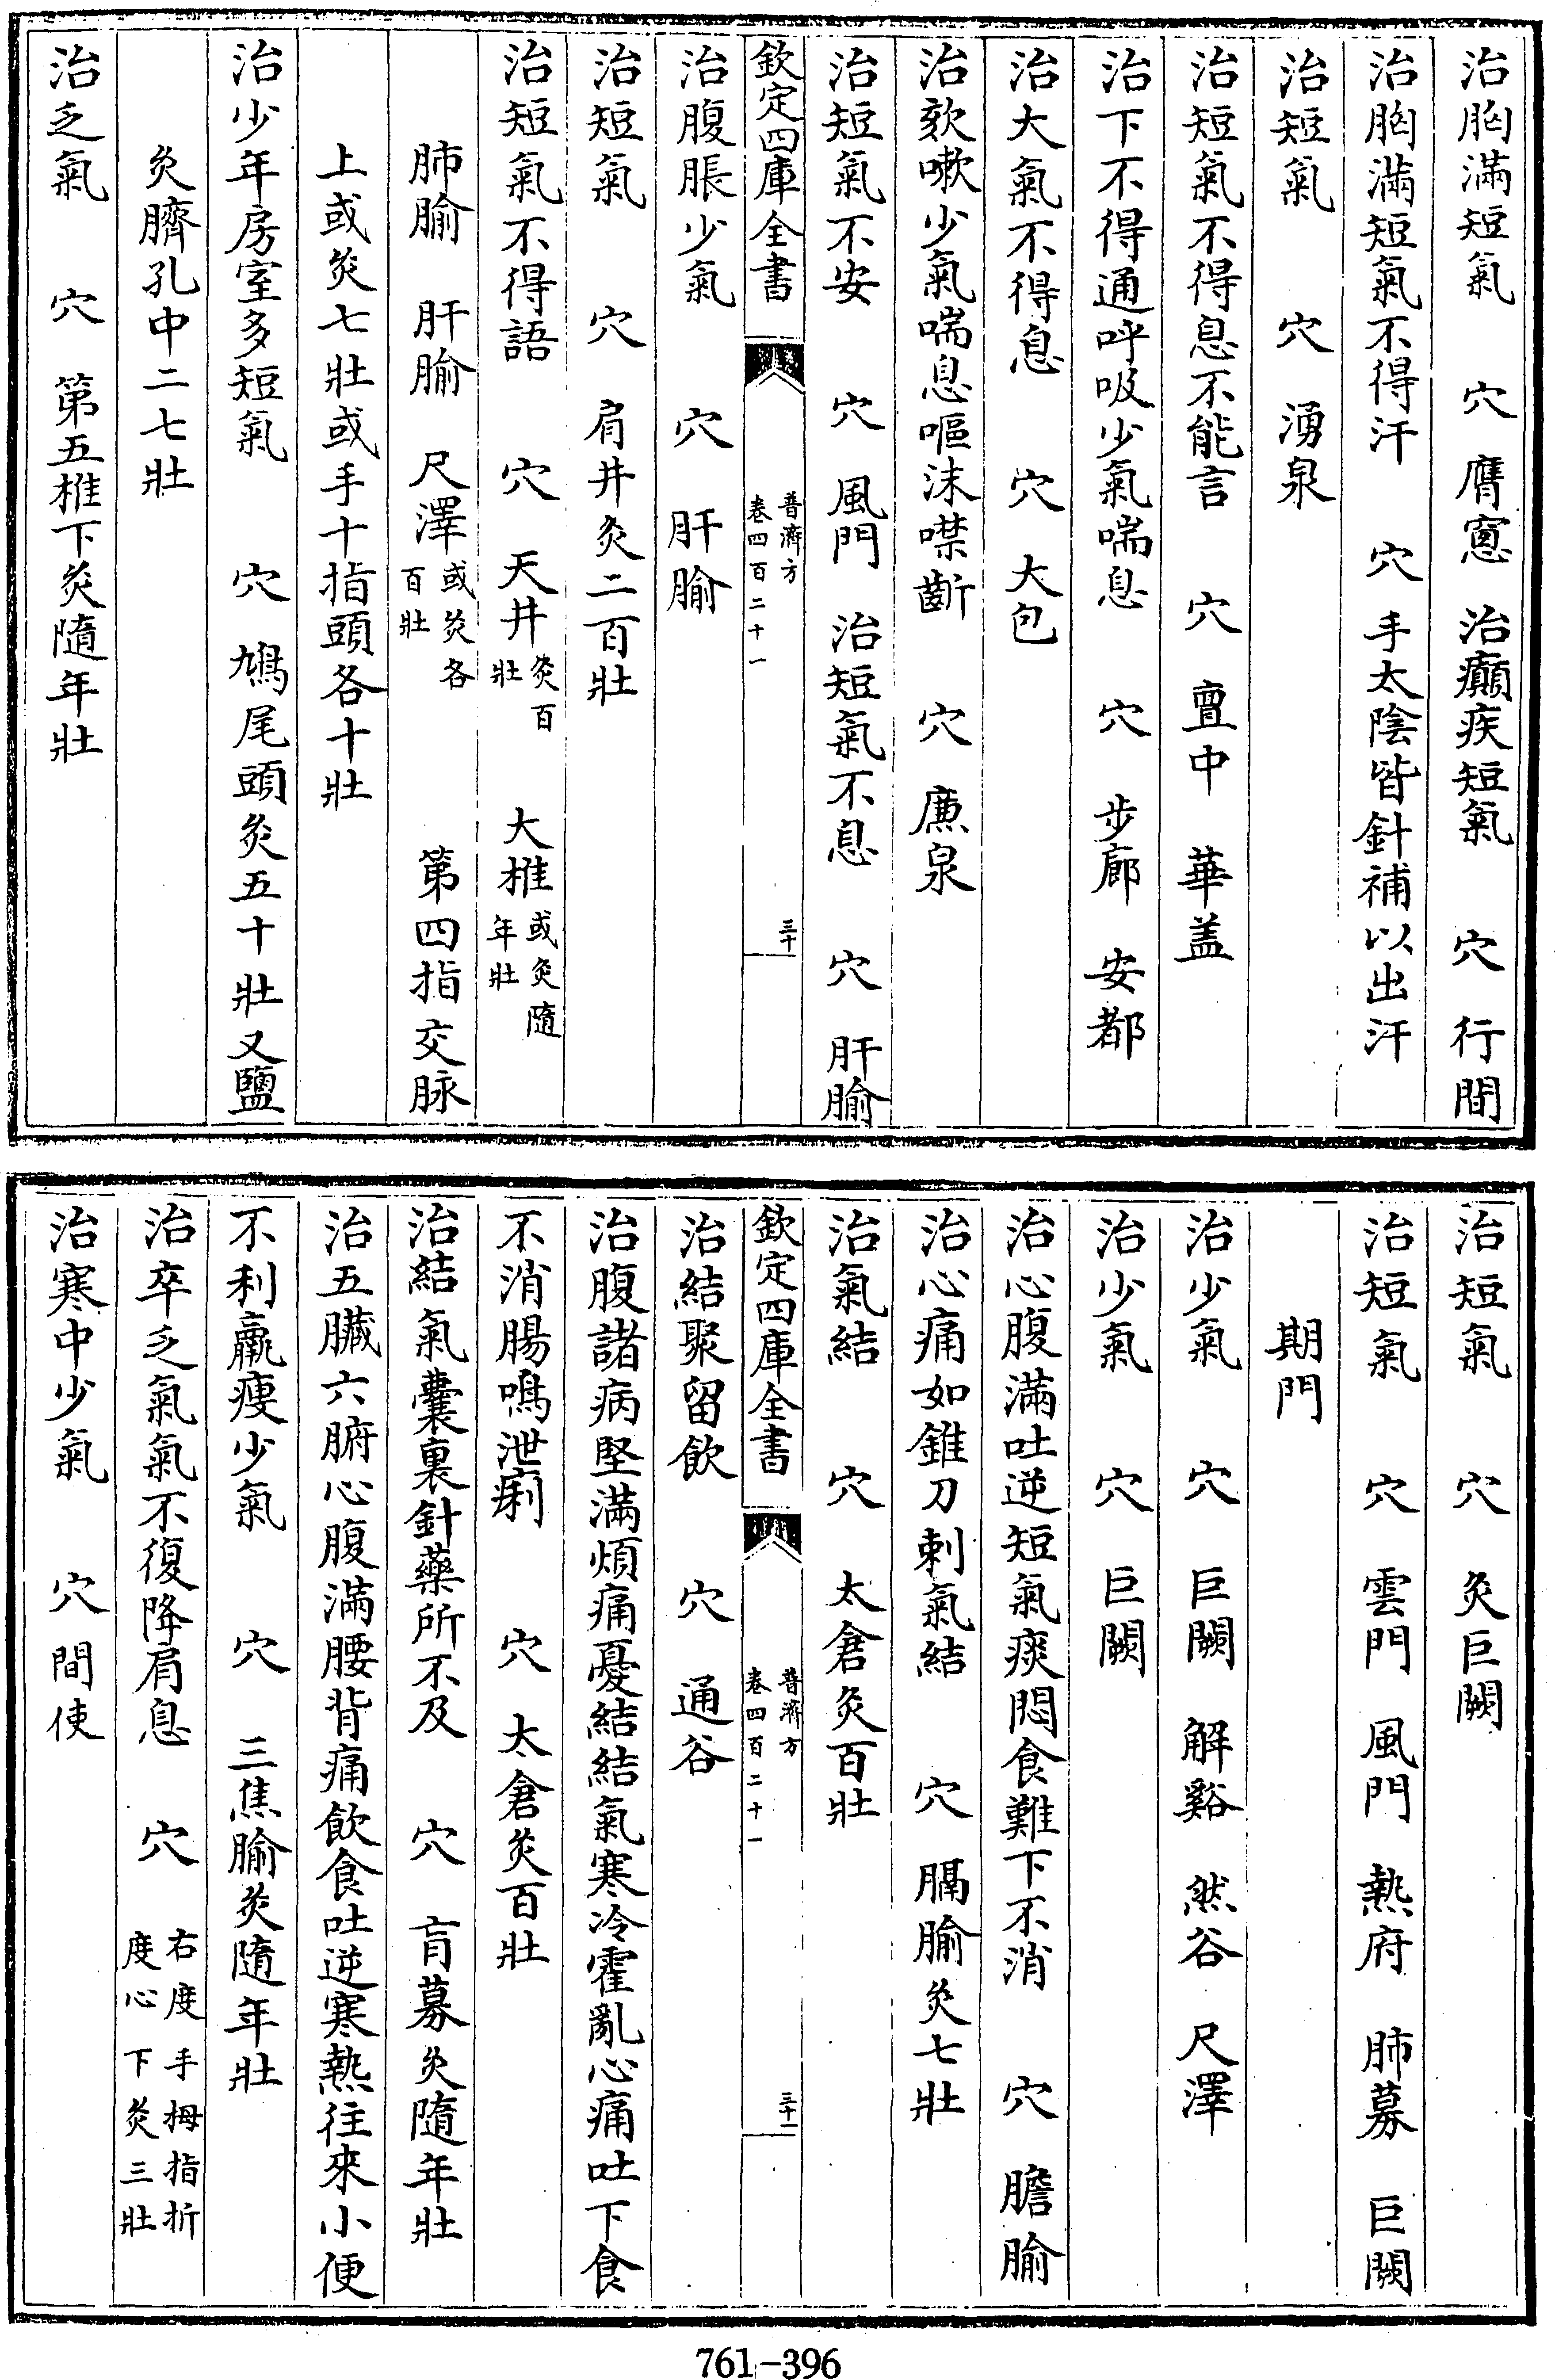 治胸滿短氣　穴　膺窻　治癲疾短氣　穴　行間
治胸滿短氣不得汗　穴　手太陰皆針補以出汗
治短氣　穴　湧泉
治短氣不得息不能言　穴　亶中　華盖
治下不得通呼吸少氣喘息　穴　步廊　安都
治大氣不得息　穴　大包
治欬嗽少氣喘息嘔沫噤齗　穴　廉泉
治短氣不安　穴　風門　治短氣不息　穴　肝腧
欽定四庫全書　普濟方　卷四百二十一　三十
治腹脹少氣　穴　肝腧
治短氣　穴　肩井灸二百壯
治短氣不得語　穴　天井灸百壯　大椎或灸隨年壯
肺腧　肝腧　尺澤或灸各百壯　第四指交脉
上或灸七壯或手十指頭各十壯
治少年房室多短氣　穴　鳩尾頭灸五十壯又鹽
灸臍孔中二七壯
治乏氣　穴　第五椎下灸隨年壯
治短氣　穴　灸巨闕
治短氣　穴　雲門　風門　熱府　肺募　巨闕
期門
治少氣　穴　巨闕　解谿　然谷　尺澤
治少氣　穴　巨闕
治心腹滿吐逆短氣痰悶食難下不消　穴　膽腧
治心痛如錐刀刺氣結　穴　膈腧灸七壯
治氣結　穴　太倉灸百壯
欽定四庫全書　普濟方　卷四百二十一　三十一
治結聚留飲　穴　通谷
治腹諸病堅滿煩痛憂結結氣寒冷霍亂心痛吐下食
不消腸鳴泄痢　穴　太倉灸百壯
治結氣囊裏針藥所不及　穴　肓募灸隨年壯
治五臟六腑心腹滿腰背痛飲食吐逆寒熱往來小便
不利羸瘦少氣　穴　三焦腧灸隨年壯
治卒乏氣氣不復降肩息　穴　右度手拇指折度心下灸三壯
治寒中少氣　穴　間使
761-396